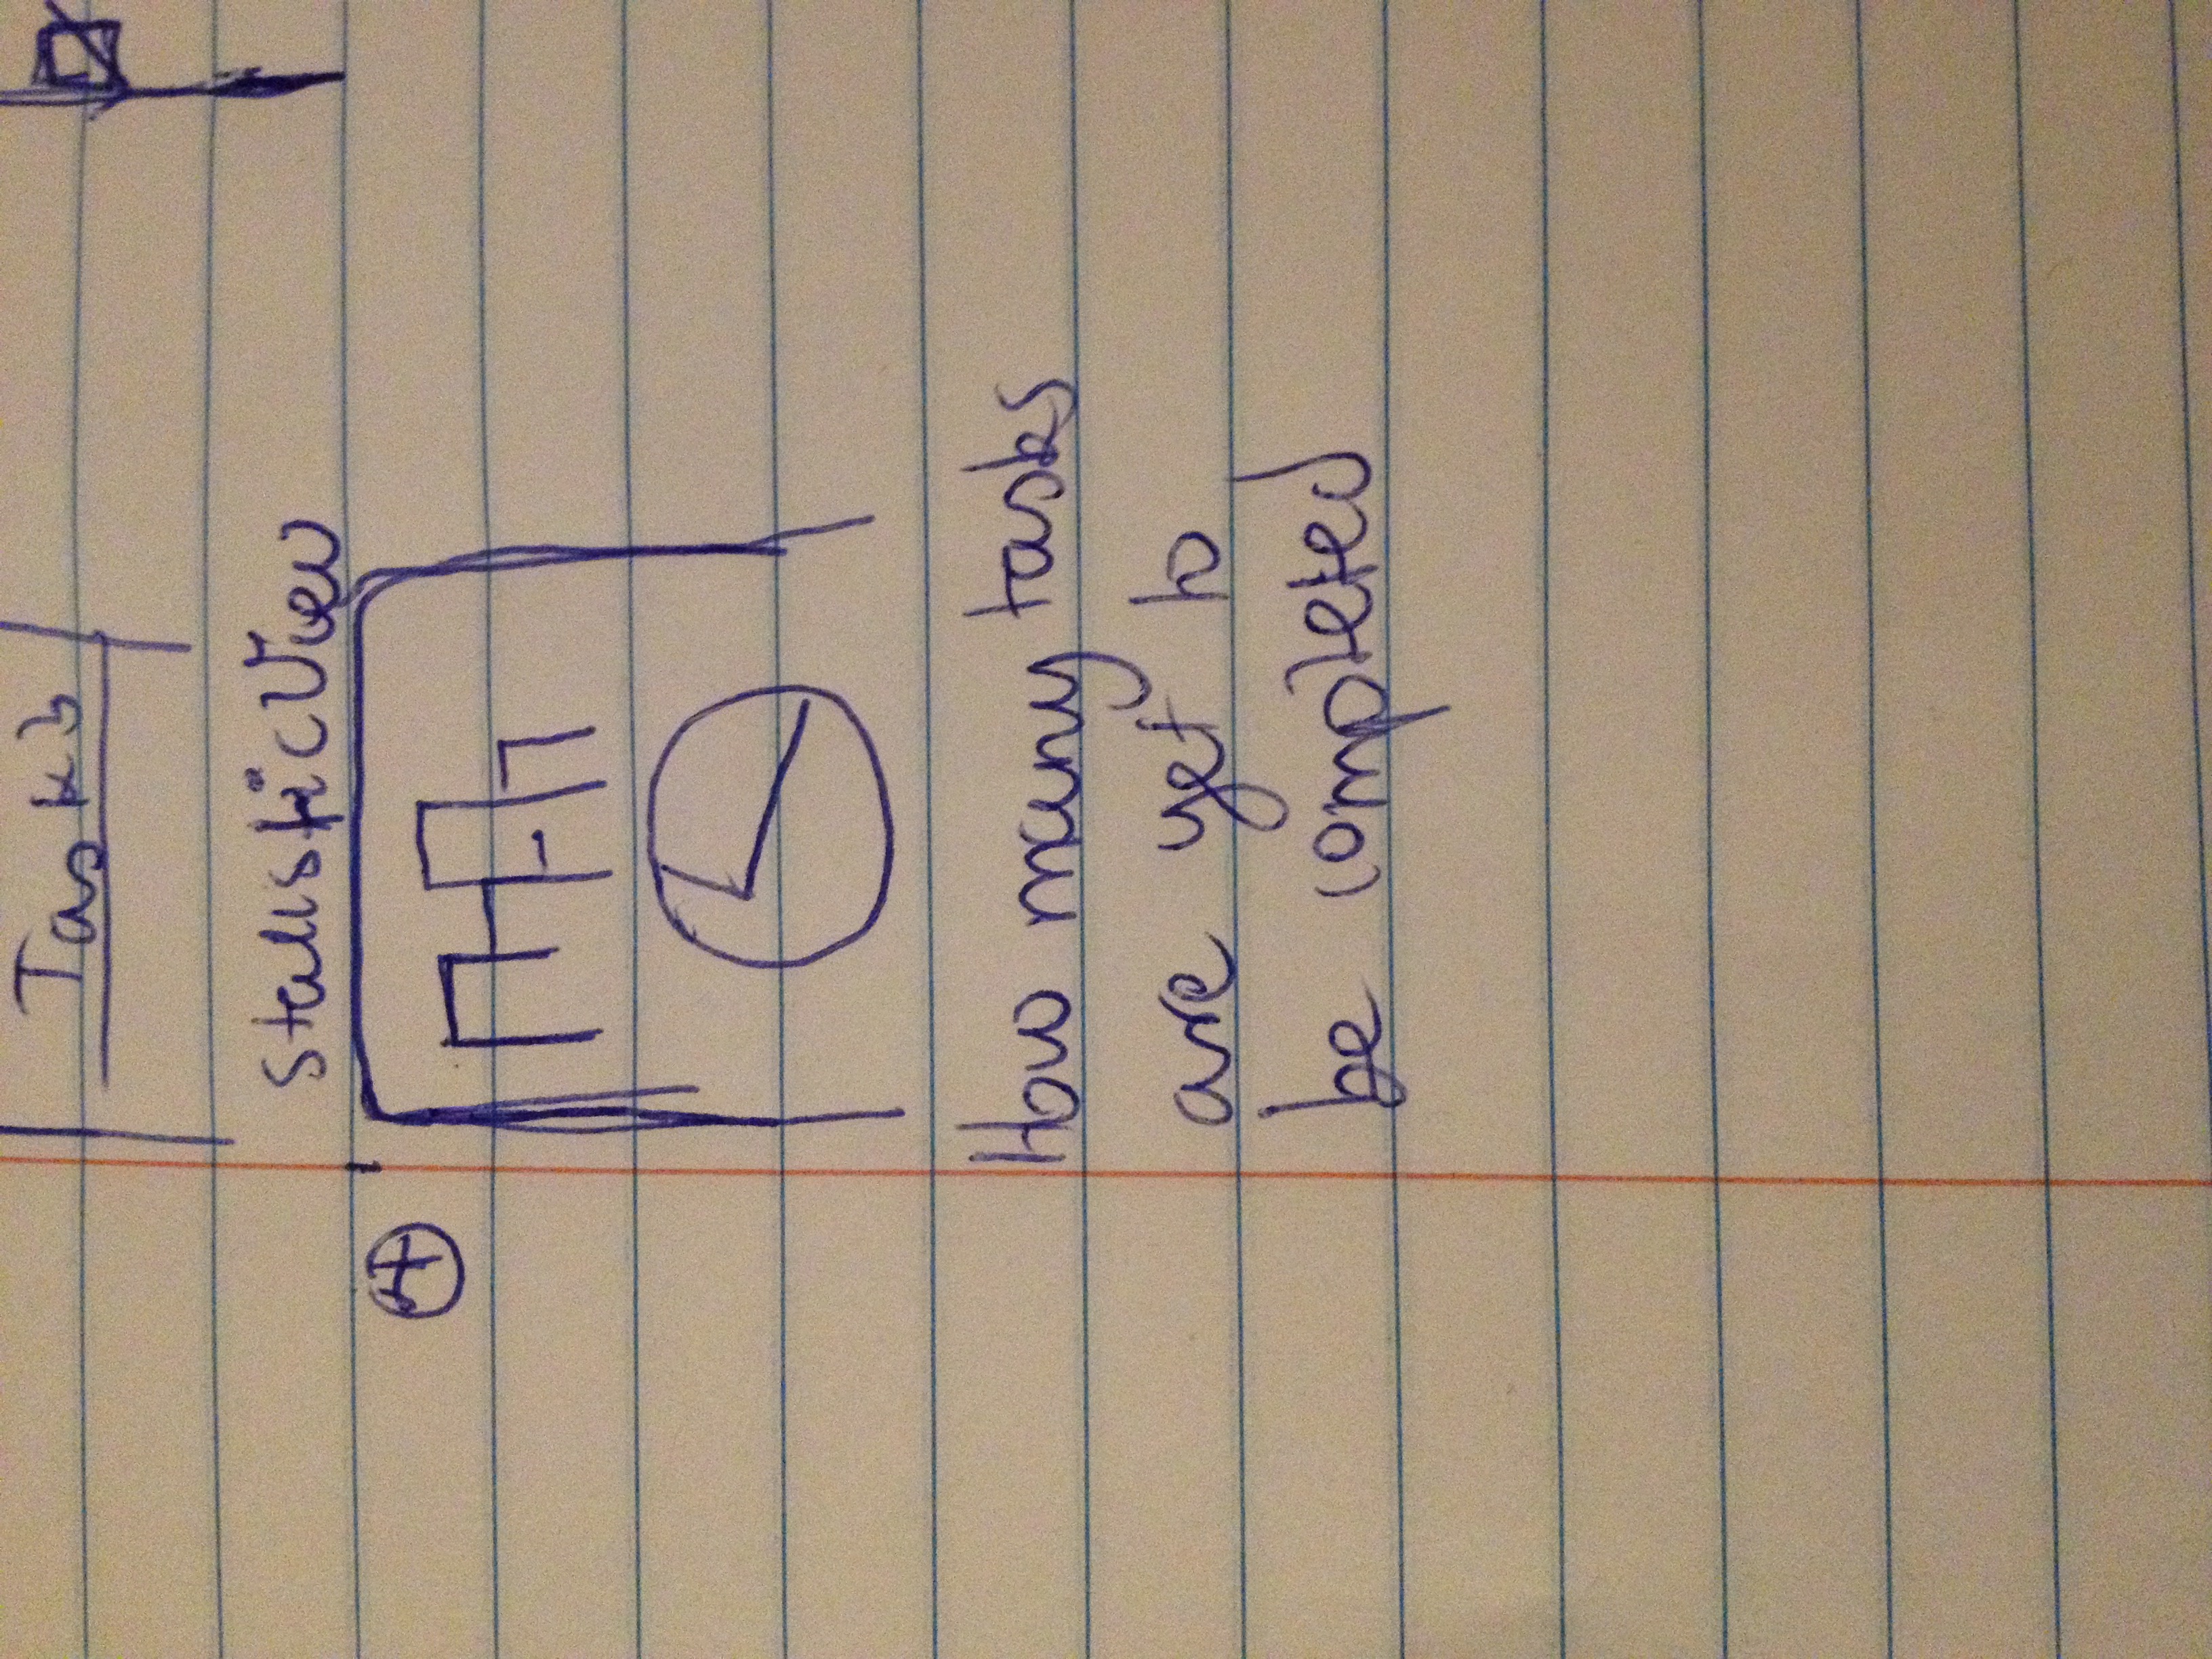 Task3
Statistic View
4
How many tasks
are yet to
be completed